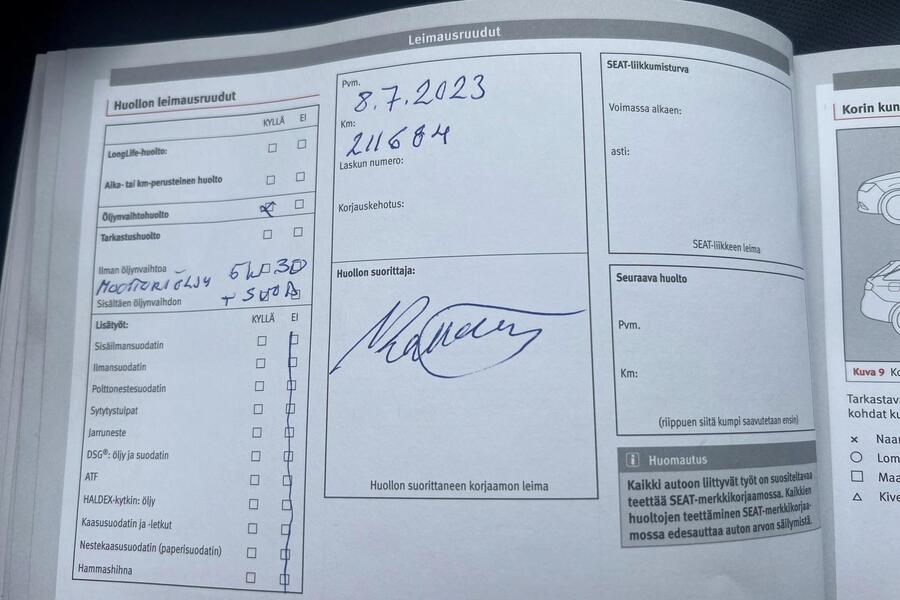 Leimausruudut
Huollon leimausruudut
KYLLÄ EI
LongLife-huolto:
Aika- tai km-perusteinen huolto
Öljynvaihtohuolto
Tarkastushuolto
Ilman öljynvaihtoa 5W 30
MOOTTORIÖLJY
Sisältäen öljynvaihdon +
Lisätyöt: KYLLÄ EI
Sisäilmansuodatin
Ilmansuodatin
Polttonestesuodatin
Sytytystulpat
Jarruneste
DSG®: öljy ja suodatin
ATF
HALDEX-kytkin: öljy
Kaasusuodatin ja -letkut
Nestekaasusuodatin (paperisuodatin)
Hammashihna
Pvm.
8.7.2023
Km:
211684
Laskun numero:
Korjauskehotus:
Huollon suorittaja:
Huollon suorittaneen korjaamon leima
SEAT-liikkumisturva
Voimassa alkaen:
asti:
SEAT-liikkeen leima
Seuraava huolto
Pvm.
Km:
(riippuen siitä kumpi saavutetaan ensin)
i Huomautus
Kaikki autoon liittyvät työt on suositeltavaa
teettää SEAT-merkkikorjaamossa. Kaikkien
huoltojen teettäminen SEAT-merkkikorjaa-
mossa edesauttaa auton arvon säilymistä.
Korin kun
Kuva 9 Ko
Tarkastava
kohdat ku
Naar
Lom
Maa
Kive